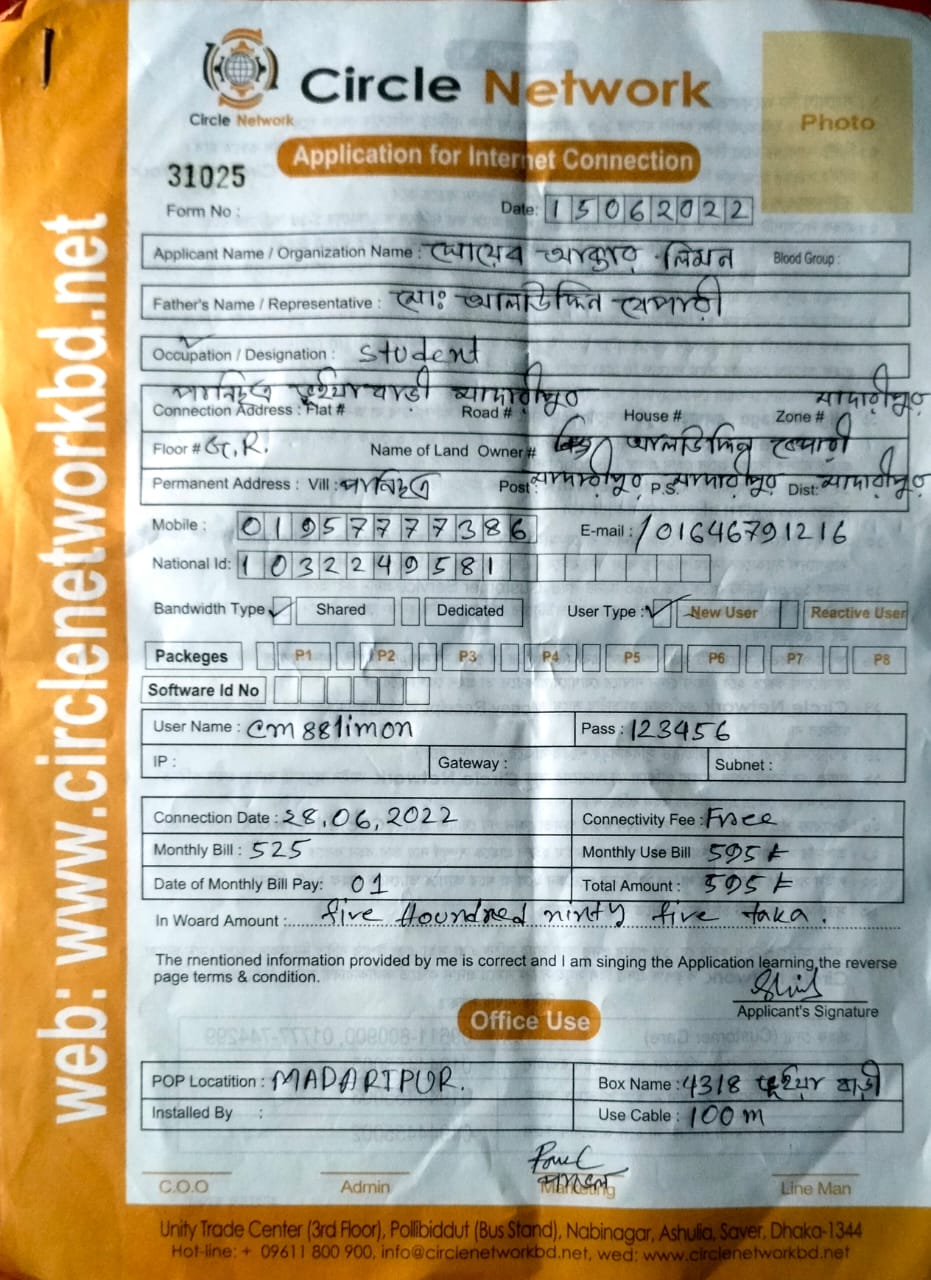 web: www.circlenetworkbd.net
Circle Network
Circle Network
Photo
Application for Internet Connection
31025
Form No :
Date: 15062022
Applicant Name / Organization Name : লিমন Blood Group :
Father's Name / Representative : মোঃ আলউদ্দিন বেপারী
Occupation / Designation : Student
পানিছত্র ভূইয়া বাড়ী মাদারীপুর মাদারীপুর
Connection Address : Flat # Road # House # Zone #
Floor # G.R. Name of Land Owner # আলউদ্দিন বেপারী
Permanent Address : Vill : পানিছত্র Post : মাদারীপুর P.S. মাদারীপুর Dist: মাদারীপুর
Mobile : 01957777386 E-mail : / 01646791216
National Id: 1032249581
Bandwidth Type Shared Dedicated User Type : New User Reactive User
Packeges P1 P2 P3 P4 P5 P6 P7 P8
Software Id No
User Name : cm88limon Pass : 123456
IP : Gateway : Subnet :
Connection Date : 28.06,2022 Connectivity Fee : Free
Monthly Bill : 525 Monthly Use Bill 595
Date of Monthly Bill Pay: 01 Total Amount : 595
In Woard Amount : five Houndred ninty five taka.
The rnentioned information provided by me is correct and I am singing the Application learning,the reverse
page terms & condition.
Applicant's Signature
Office Use
POP Locatition : MADARIPUR. Box Name : 4318 ভূইয়া বাড়ী
Installed By : Use Cable : 100 m
C.O.O Admin Marketing Line Man
Unity Trade Center (3rd Floor), Pollibiddut (Bus Stand), Nabinagar, Ashulia, Saver, Dhaka-1344
Hot-line: + 09611 800 900, info@circlenetworkbd.net, wed: www.circlenetworkbd.net